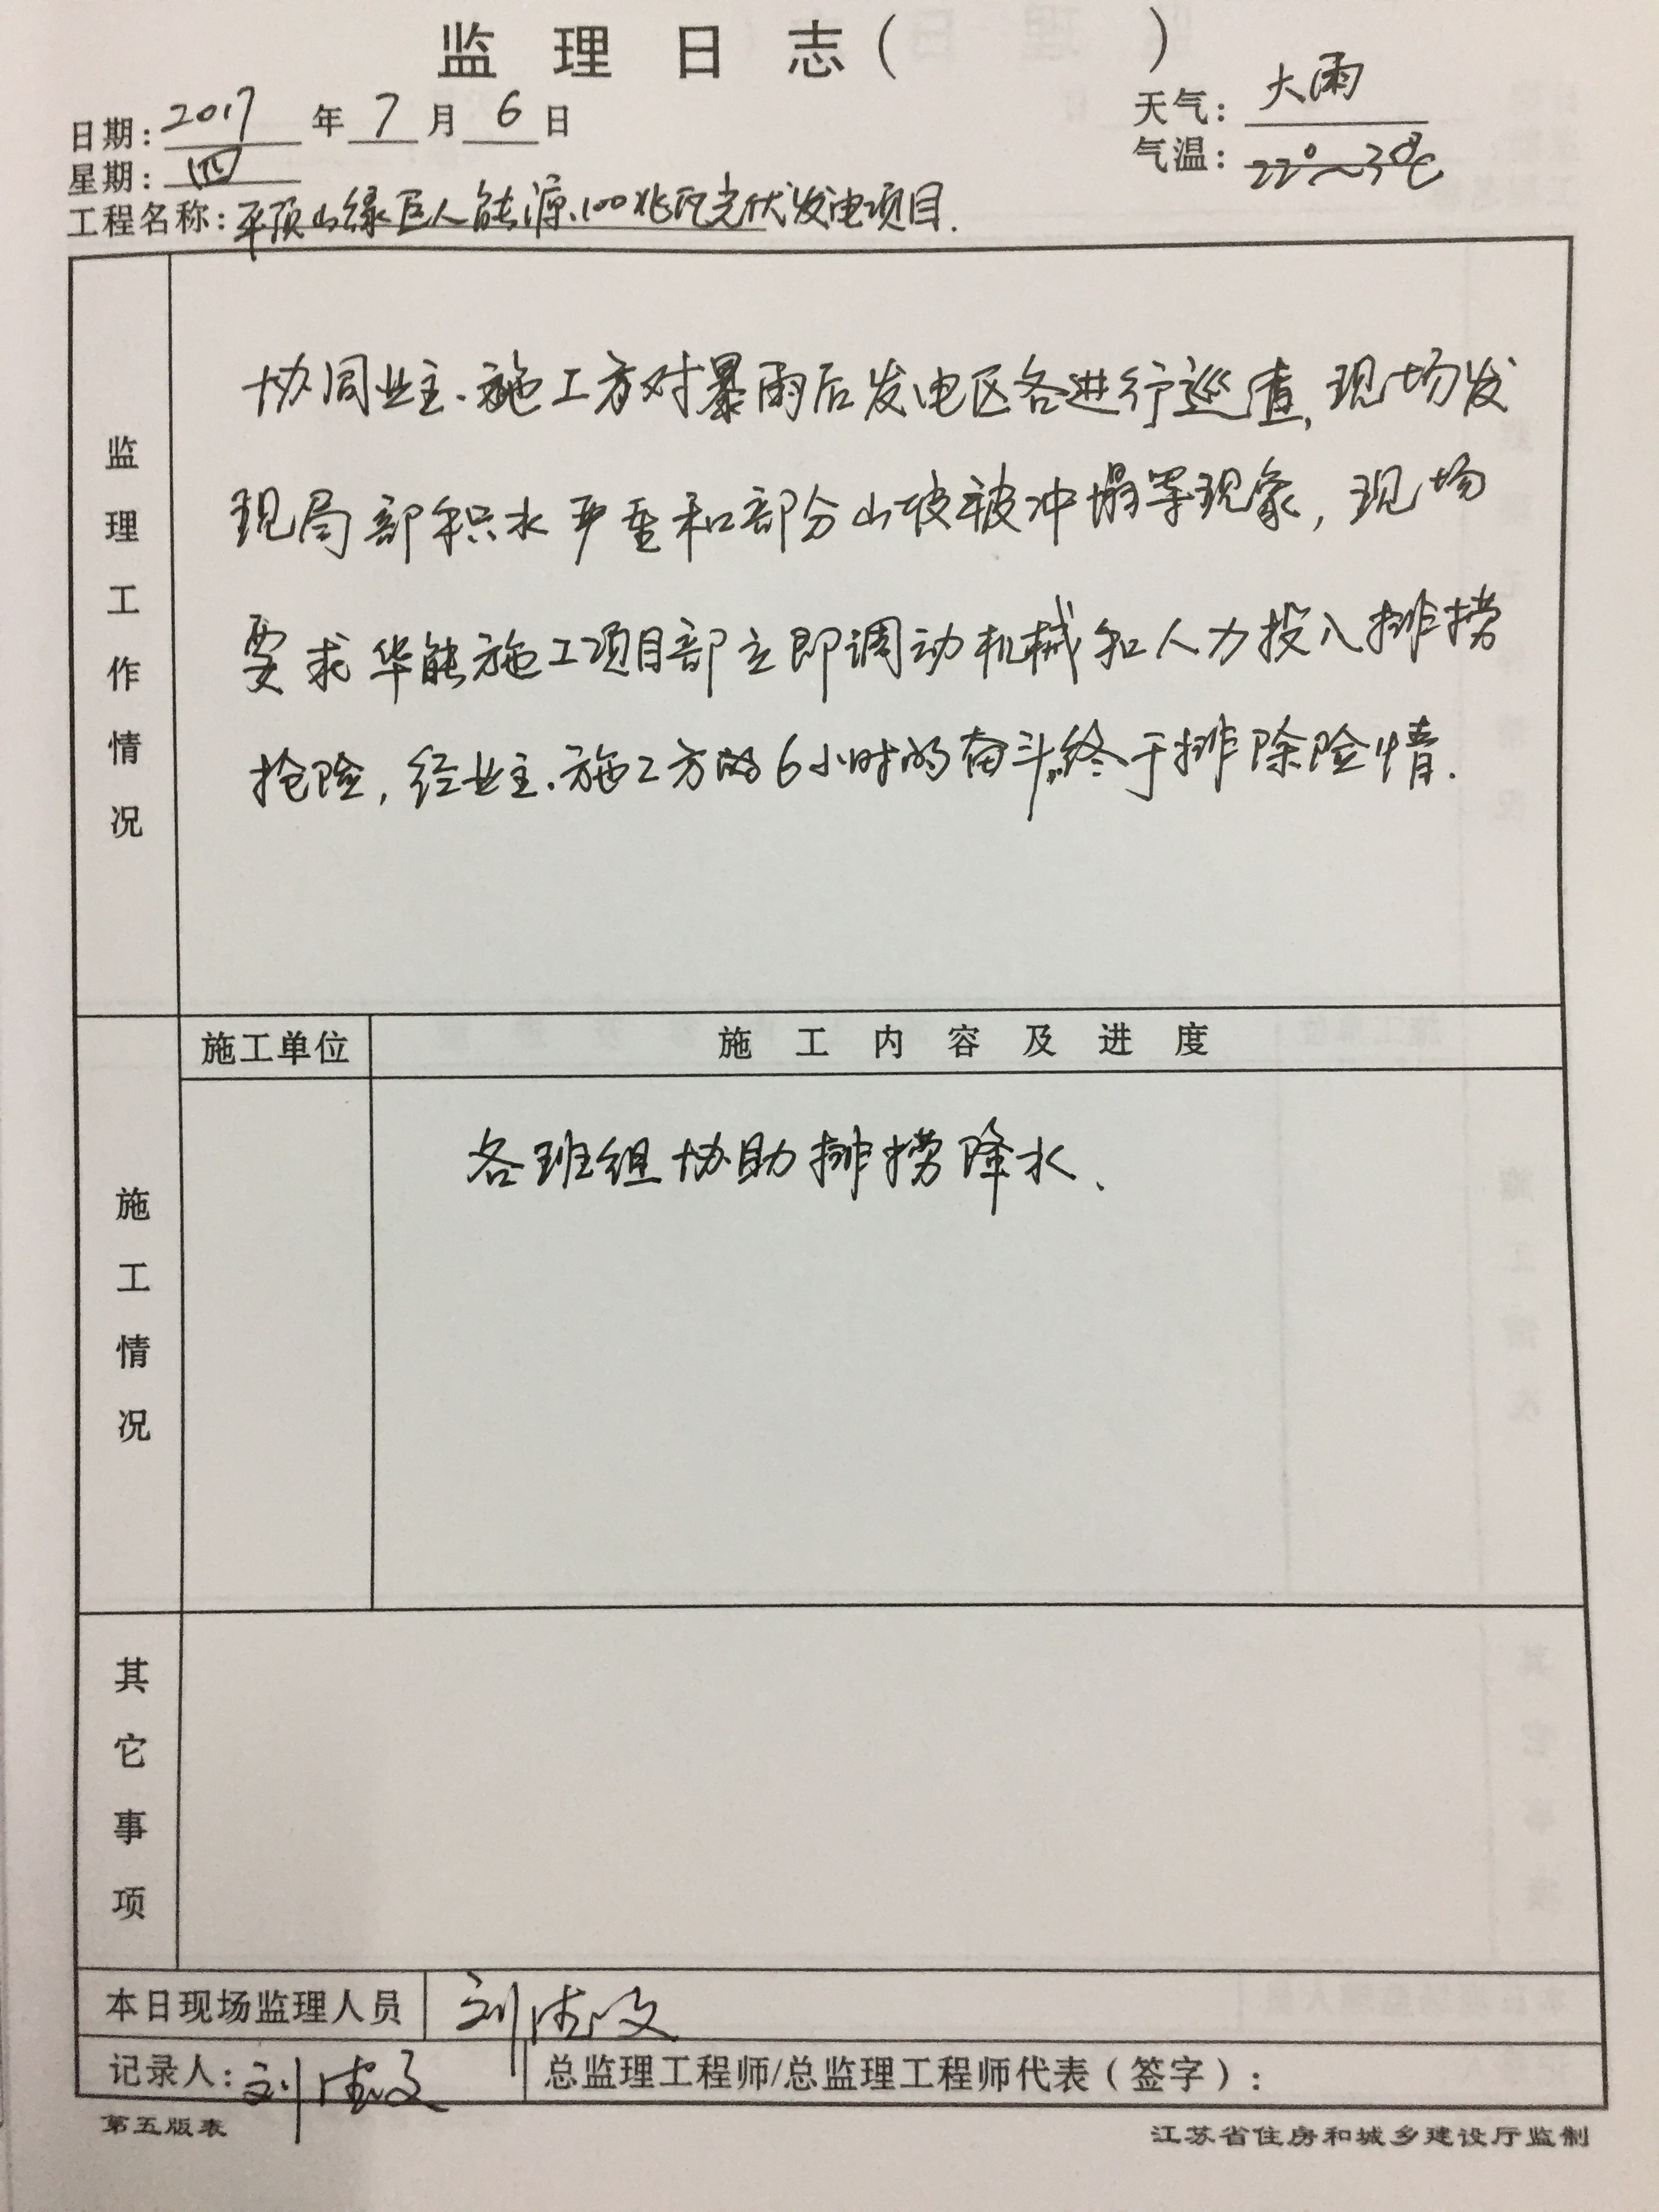 监理日志（ ）
日期：2017年7月6日
天气：大雨
星期：四
气温：22°~30℃
工程名称：平顶山绿巨人能源.100兆瓦光伏发电项目.
监理工作情况
协同业主.施工方对暴雨后发电区各进行巡查,现场发
现局部积水严重和部分山坡被冲塌等现象,现场
要求华能施工项目部立即调动机械和人力投入排捞
抢险,经业主.施工方的6小时的奋斗,终于排除险情.
施工情况
施工单位
施工内容及进度
各班组协助排捞降水、
其它事项
本日现场监理人员 刘
记录人：刘
总监理工程师/总监理工程师代表（签字）：
第五版表
江苏省住房和城乡建设厅监制